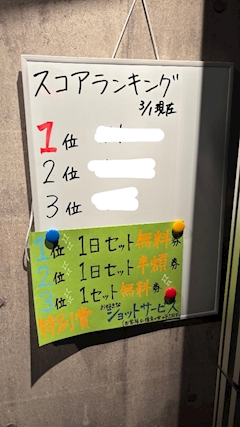 スコアランキング
3/1 現在
1位
2位
3位
1位 1日セット無料券
2位 1日セット半額券
3位 1セット無料券
特別賞 お好きな ショットサービス